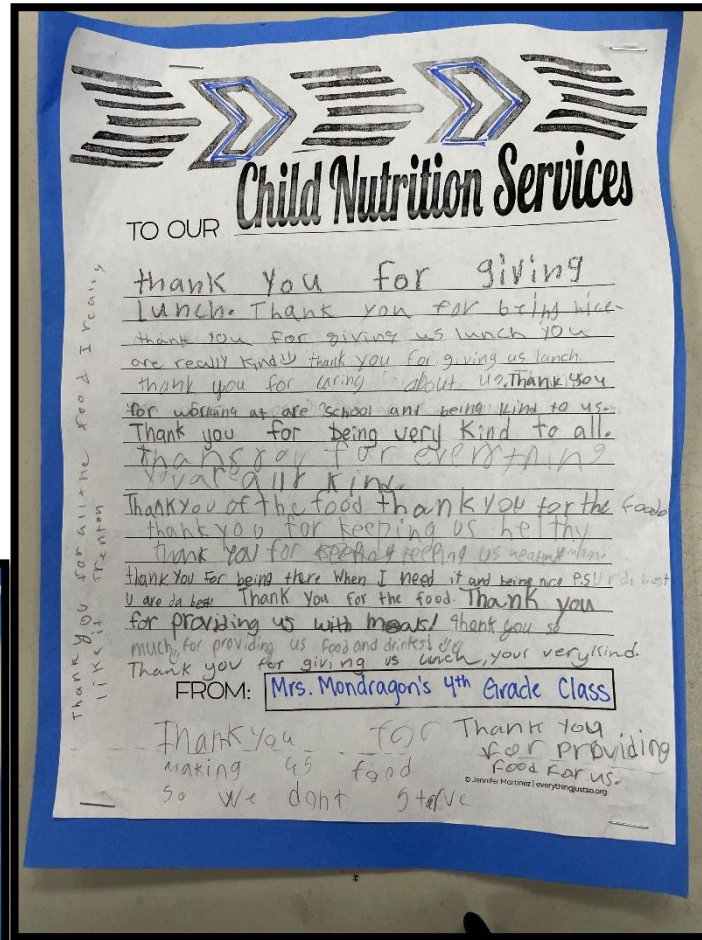 TO OUR Child Nutrition Services
thank you for giving
lunch. Thank you for being nice
thank you for giving us lunch you
are really kind thank you for giving us lunch.
thank you for caring about us. Thank you
for working at are school and being kind to us.
Thank you for being very Kind to all.
thank you for everything
you are all kind.
Thank you of the food thank you for the foods
thank you for keeping us helthy
thank you for keeping us
thank you for being there when I need it and being nice P.S U r da best
U are da best Thank you for the food. Thank you
for providing us with meals! thank you so
much, for providing us food and drinks!
Thank you for giving us lunch, your very kind.
FROM: Mrs. Mondragon's 4th Grade Class
Thank you for
making us food
so we dont starve
Thank you
for providing
Food For us.
© Jennifer Martinez | everythingjustso.org
Thank you for all the food I really
like it Trenton